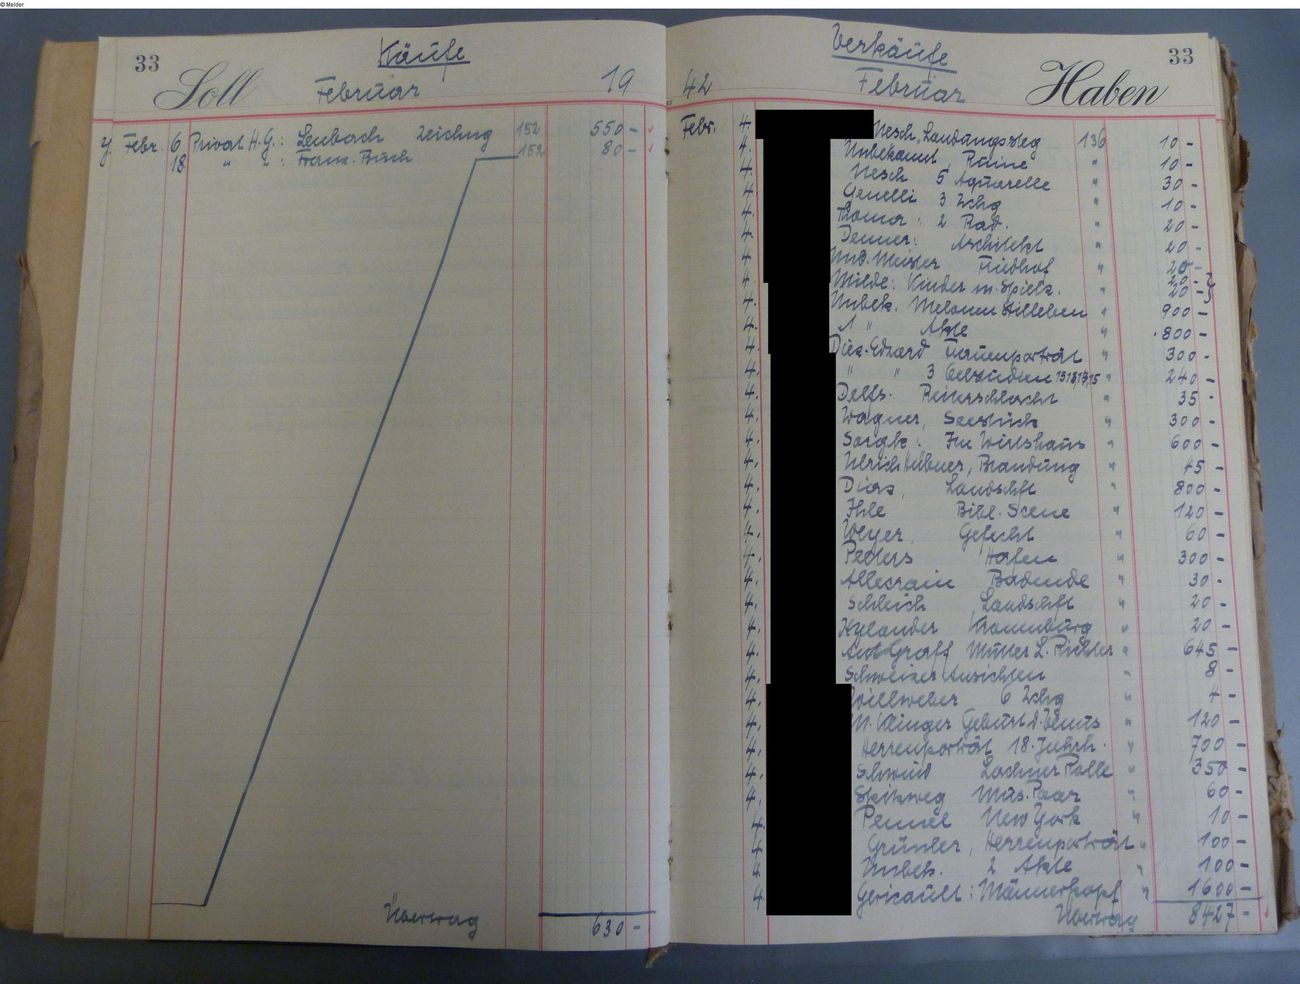 © Melder
33 Käufe
Soll Februar 19
y Febr. 6 Privat H.G.: Lenbach Zeichng 152 550 -
18 " " : Franz. Buch 152 80 -
Übertrag 630 -
Verkäufe 33
42 Februar Haben
Febr. 4. Nesch, Landungssteg 136 10 -
4. Unbekannt, Ruine " 10 -
4. Nesch 5 Aquarelle " 30 -
4. Genelli 3 Zchg " 10 -
4. Thoma: 2 Rad. " 20 -
4. Denner: Architekt " 20 -
4. Unb. Meister Friedhof " 20 -
4. Milde: Kinder m. Spielz. " 20 -
4. Unbek. Melonenstilleben " 900 -
4. 1 " Akte " 800 -
4. Diez. Edvard Frauenporträt " 300 -
4. " " 3 " 240 -
4. Delfs. Reiterschlacht " 35 -
4. Wagner, Seestück " 300 -
4. Im Wirtshaus " 600 -
4. Ulrich Hübner, Brandung " 45 -
4. Diaz, Landschft " 800 -
4. Ihle Bibl. Scene " 120 -
4. Weyer, Gefecht " 60 -
4. Peeters Hafen " 300 -
4. Allegrain Badende " 30 -
4. Schleich, Landschft " 20 -
4. Xylander " 20 -
4. Ant Graff Mutter L. Richter " 645 -
4. Schweizer Ansichten " 8 -
4. 6 Zchg " 4 -
4. M. Klinger Geburt d. Venus " 120 -
4. Herrenporträt 18. Jahrh. " 700 -
4. Schwind Lachner Rolle " 350 -
4. Spitzweg Mus. Paar " 60 -
4. Pennel New York " 10 -
4. Grünler, Herrenporträt " 100 -
4. Unbek. 2 Akte " 100 -
4. Gericault: Männerkopf " 1600 -
Übertrag 8427 -